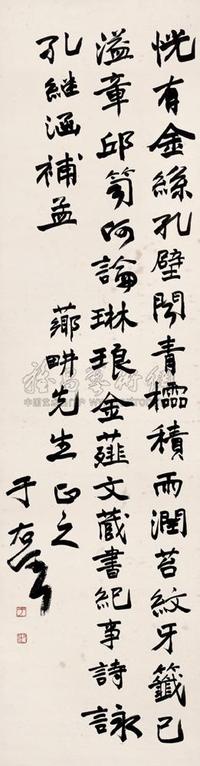 恍有金絲孔壁聞青櫺積雨潤苔紋牙籤已
溢章邱笥何論琳琅金薤文藏書紀事詩詠
孔繼涵補孟
薌畊先生正之
于右任